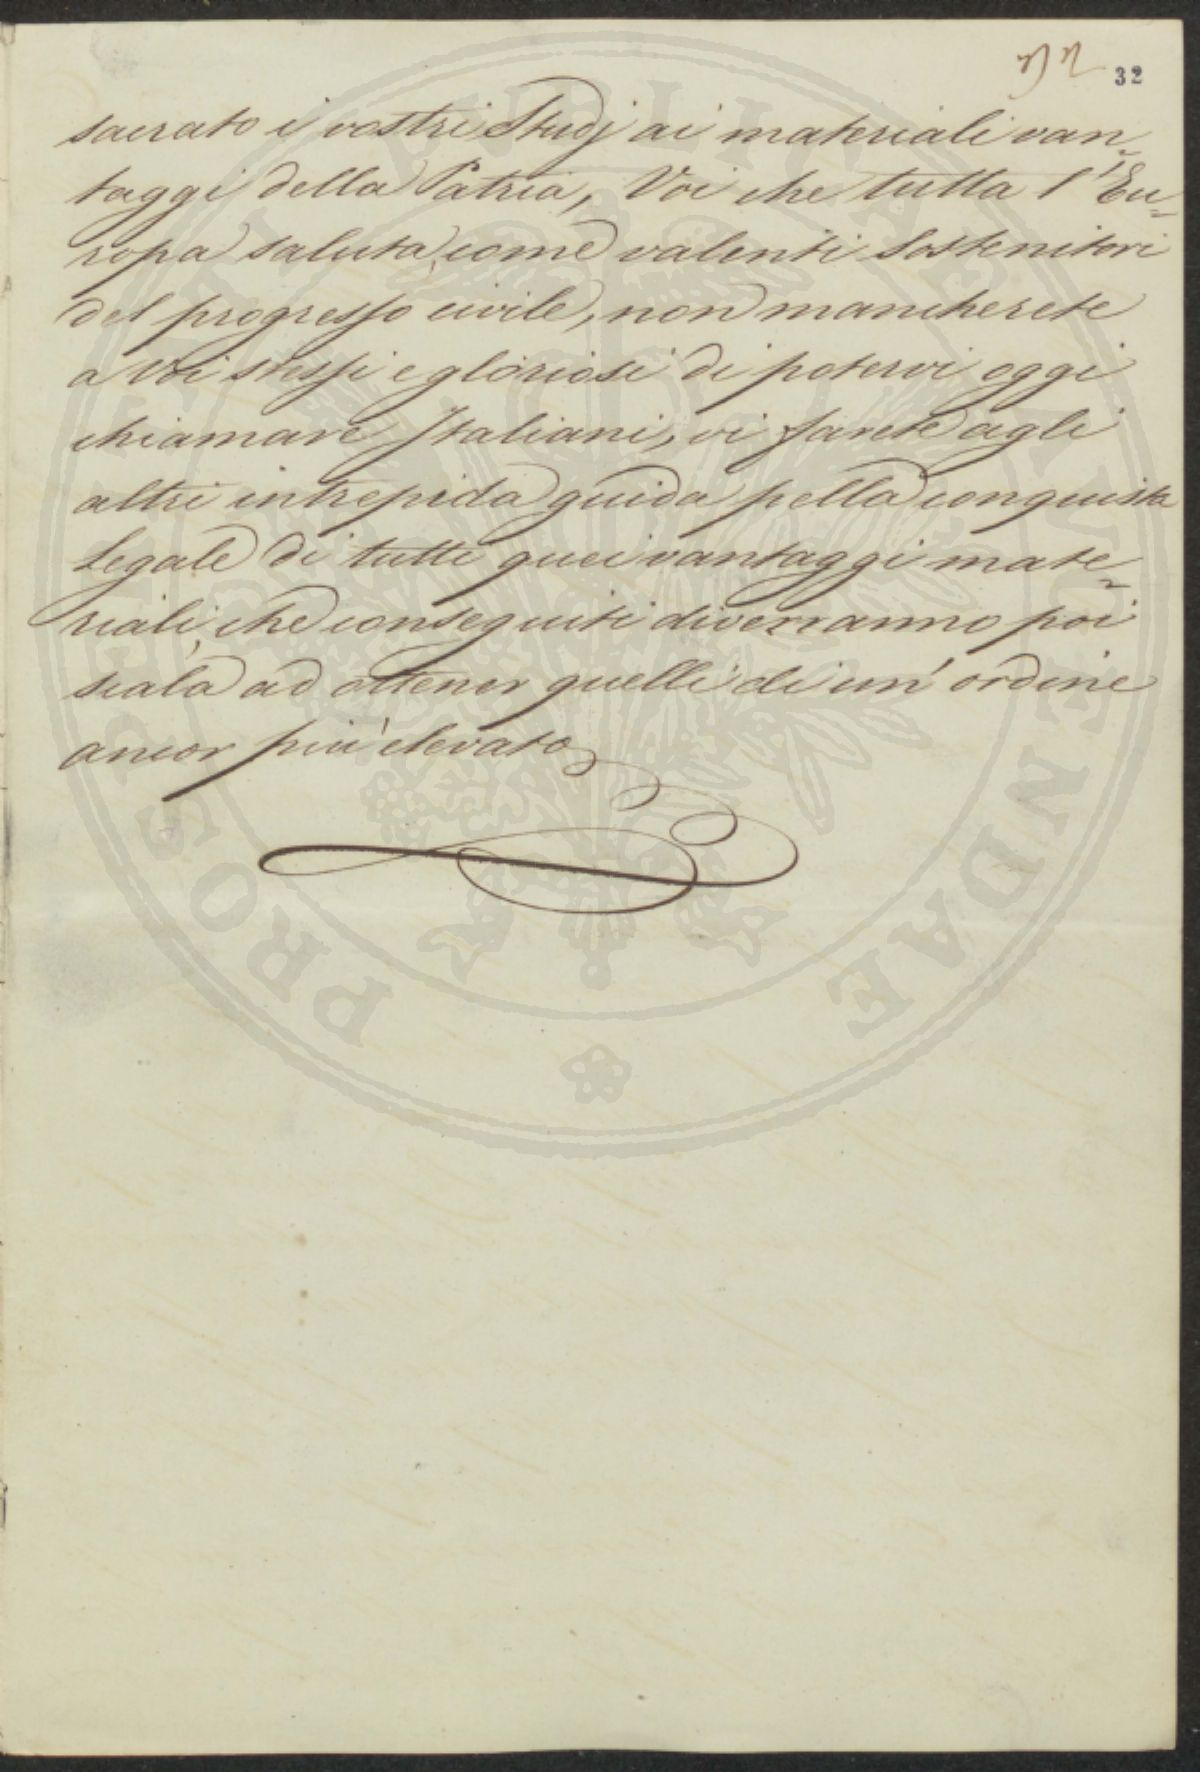 32
sacrato i vostri Studj ai materiali van-
taggi della Patria, Voi che tutta l'Eu-
ropa saluta, come valenti Sostenitori
del progresso civile, non mancherete
a voi stessi e gloriosi di potervi oggi
chiamare Italiani, vi farete agli
altri intrepida guida pella conquista
Legale di tutti quei vantaggi mate-
riali, che conseguiti diverranno poi
scala ad ottener quelli di un' ordine
ancor più elevato
PUBLICAE UTILITATI PROSSPICIENDAE